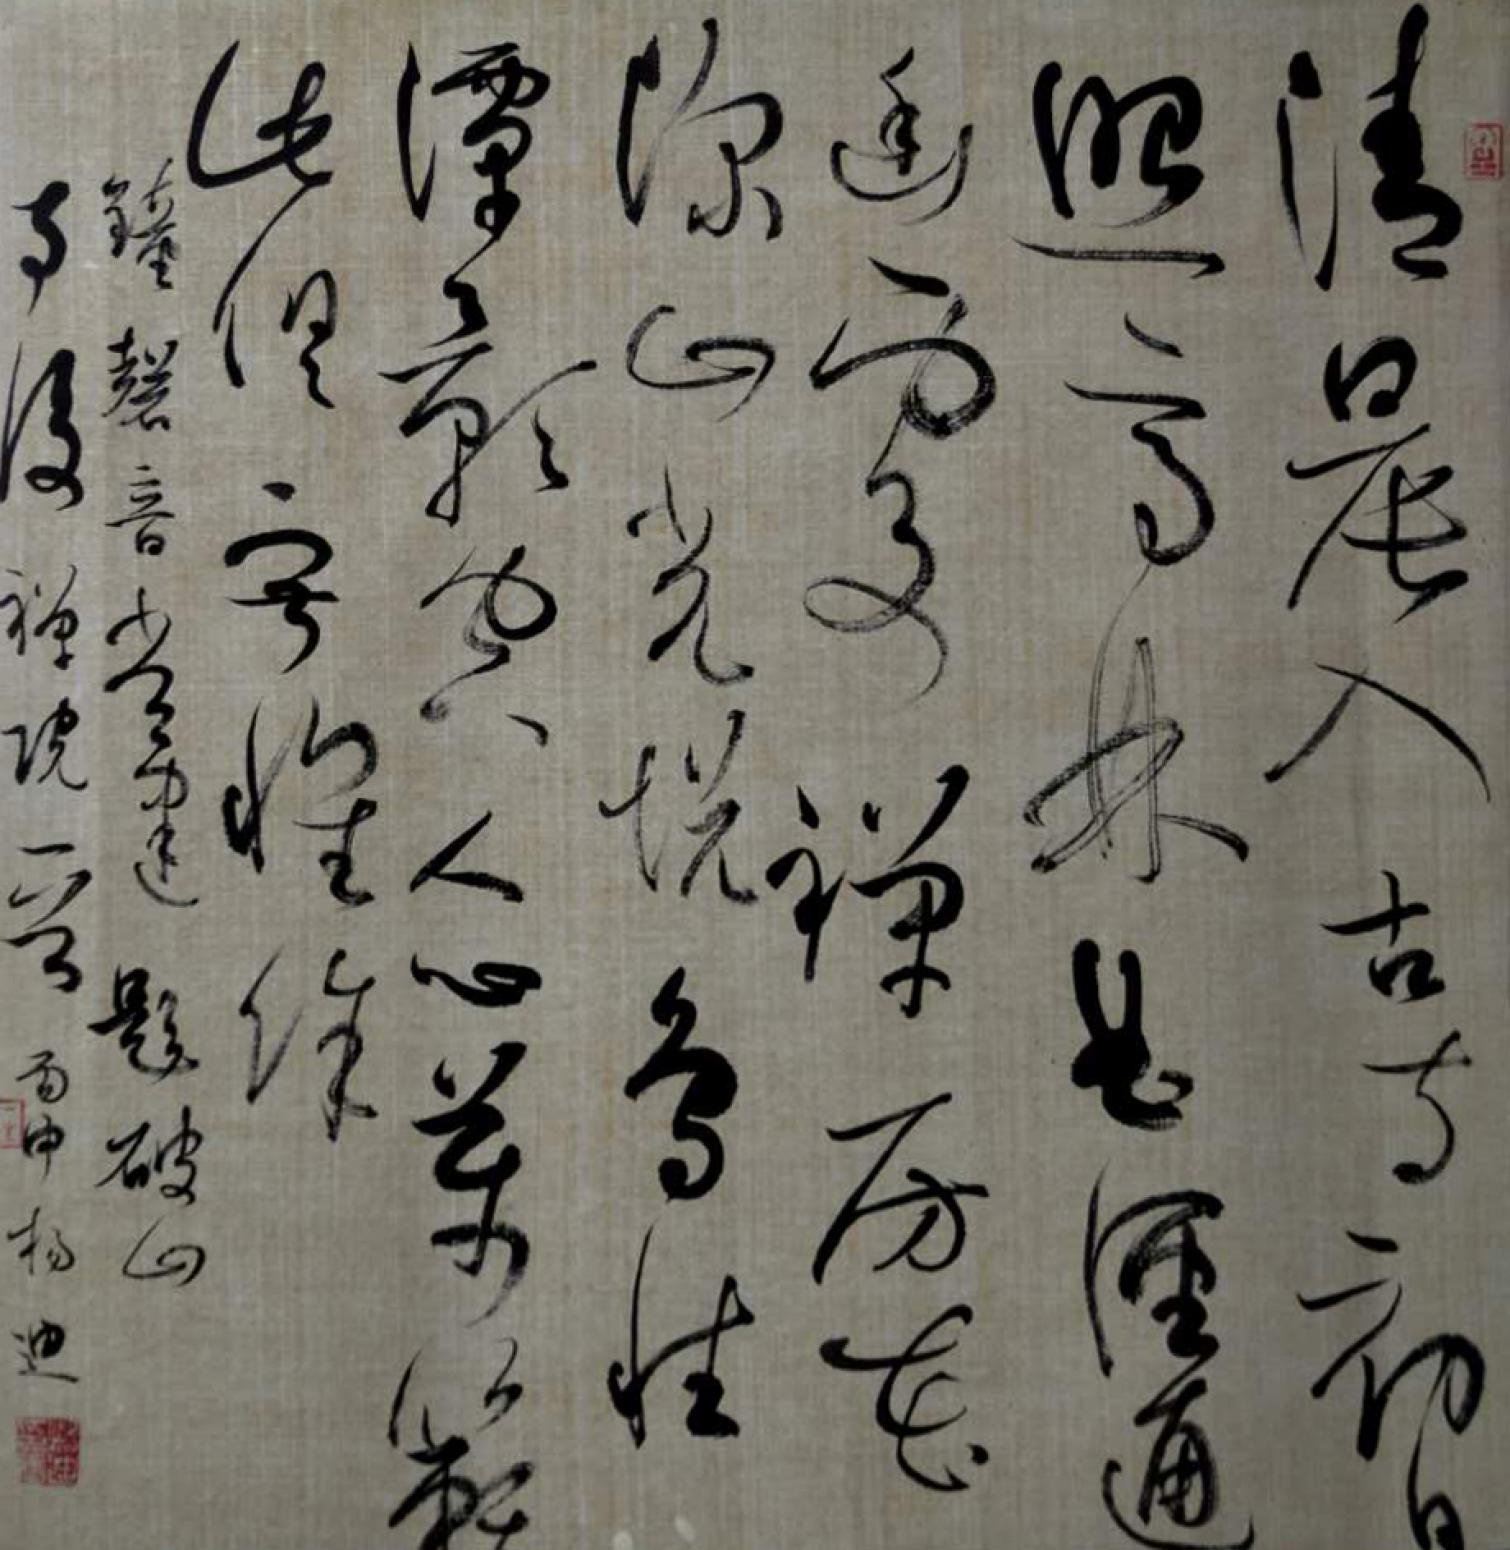 清晨入古寺初日
照高林曲徑通
幽處禪房花
深山光悅鳥性
潭影空人心萬籟
此俱寂惟餘
鐘磬音常建題破山
寺後禪院一首丙申楊迪